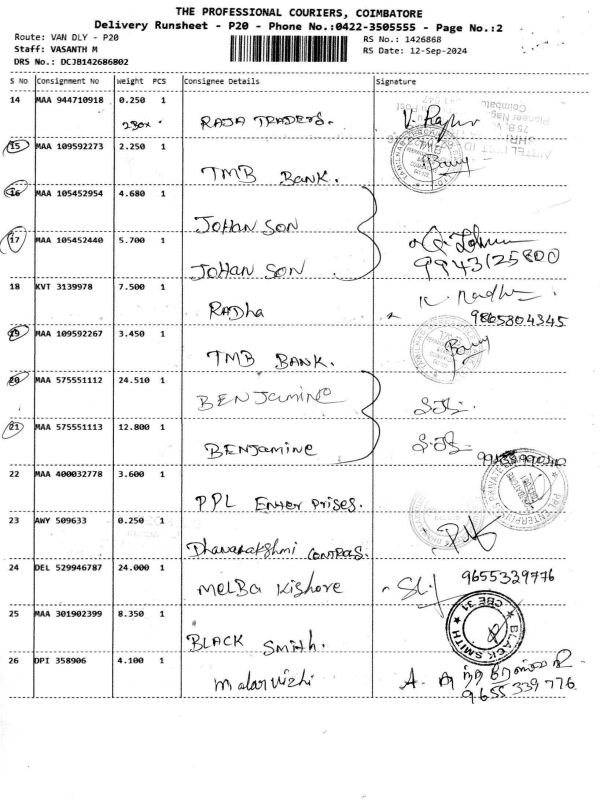 THE PROFESSIONAL COURIERS, COIMBATORE
Delivery Runsheet - P20 - Phone No.:0422-3505555 - Page No.:2
Route: VAN DLY - P20
Staff: VASANTH M
DRS No.: DCJB142686802
RS No.: 1426868
RS Date: 12-Sep-2024
S No Consignment No Weight PCS Consignee Details Signature
14 MAA 944710918 0.250 1
RAJA TRADERS.
15 MAA 109592273 2.250 1
TMB BANK.
16 MAA 105452954 4.680 1
JOHAN SON
17 MAA 105452440 5.700 1
9943125800
JOHAN SON
18 KVT 3139978 7.500 1
RADha
9865804345
19 MAA 109592267 3.450 1
TMB BANK.
20 MAA 575551112 24.510 1
BENJamine
21 MAA 575551113 12.800 1
BENJamine
22 MAA 400032778 3.600 1
PPL Enter Prises.
23 AWY 509633 0.250 1
24 DEL 529946787 24.000 1
9655329776
MELBA Kishore
25 MAA 301902399 8.350 1
BLACK Smith.
BLACK SMITH
CBE 31
26 DPI 358906 4.100 1
malarvizhi
9655 339 776